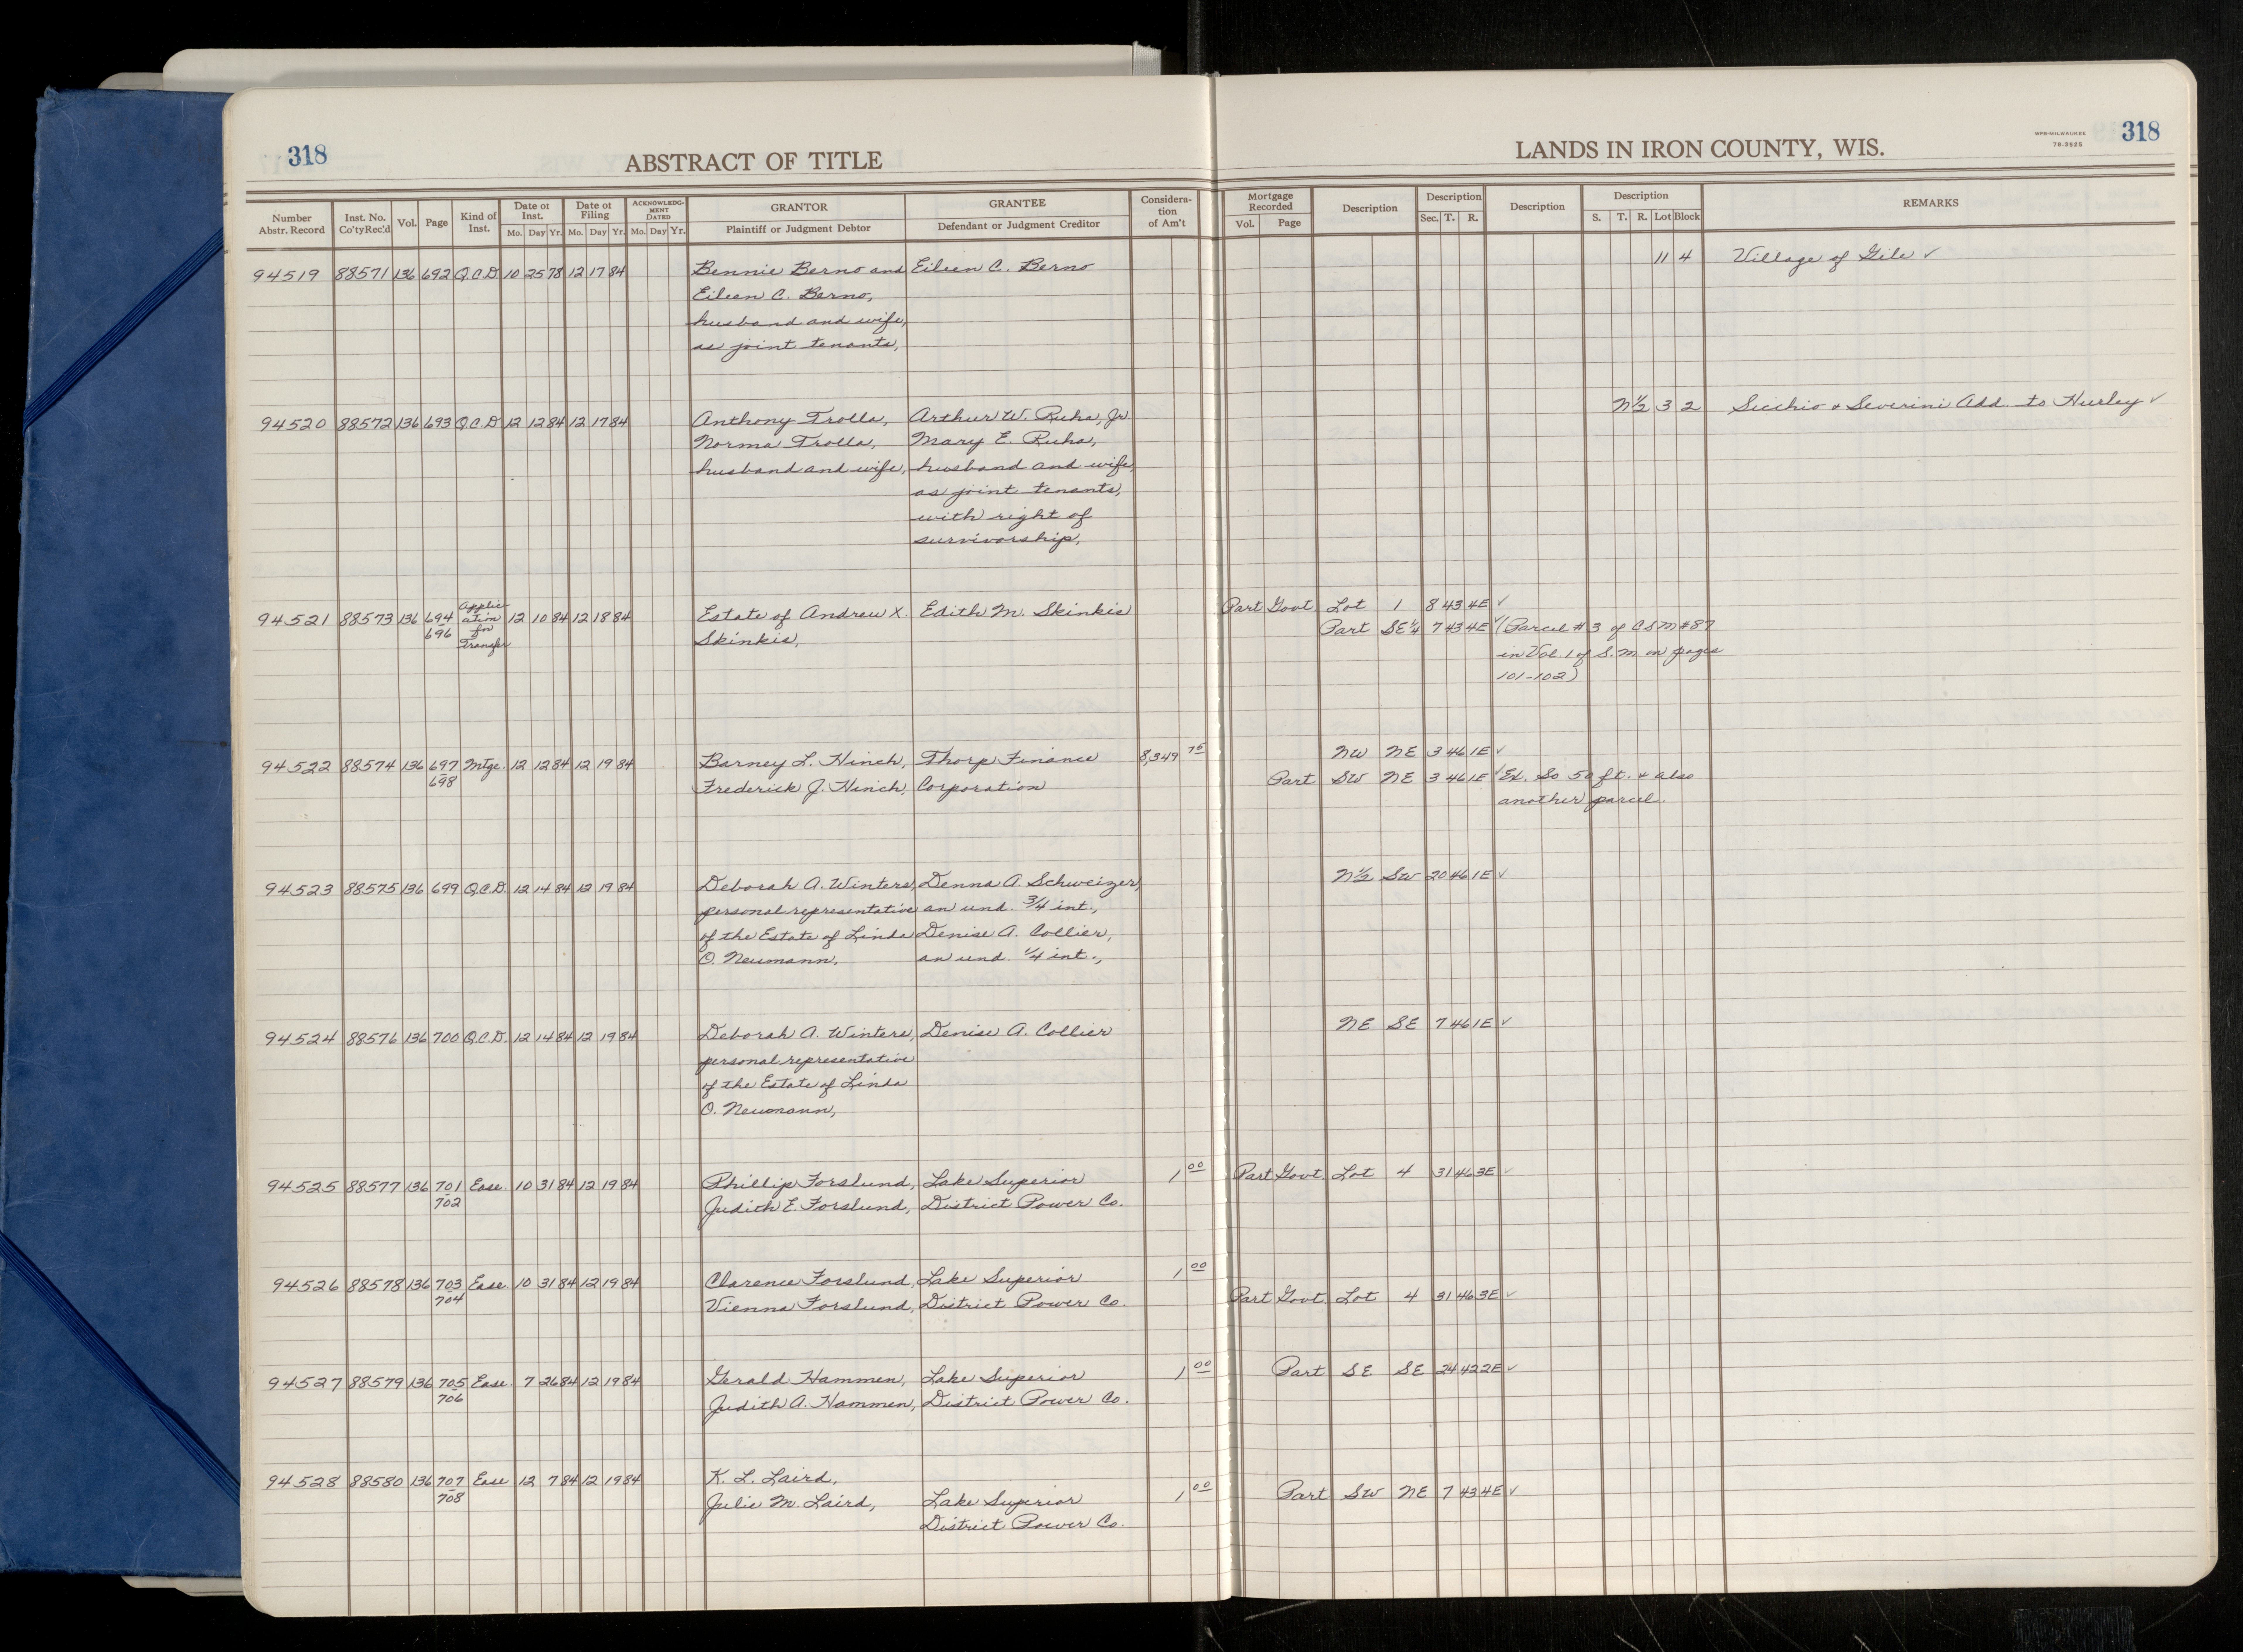 318
ABSTRACT OF TITLE
Number Abstr. Record Inst. No. Co'ty Rec'd Vol. Page Kind of Inst. Date of Inst. Mo. Day Yr. Date of Filing Mo. Day Yr. ACKNOWLEDG-MENT DATED Mo. Day Yr. GRANTOR Plaintiff or Judgment Debtor GRANTEE Defendant or Judgment Creditor Considera-tion of Am't
94519 88571 136 692 Q.C.D. 10 25 78 12 17 84 Bennie Berno and Eileen C. Berno
Eileen C. Berno,
husband and wife,
as joint tenants,
94520 88572 136 693 Q.C.D. 12 12 84 12 17 84 Anthony Trolla, Arthur W. Ruha, Jr.
Norma Trolla, Mary E. Ruha,
husband and wife, husband and wife,
as joint tenants,
with right of
survivorship,
94521 88573 136 694 696 Applic-ation for Transfer 12 10 84 12 18 84 Estate of Andrew X. Edith M. Skinkis
Skinkis,
94522 88574 136 697 698 Mtge. 12 12 84 12 19 84 Barney L. Hinch, Thorp Finance 8,349 75
Frederick J. Hinch, Corporation
94523 88575 136 699 Q.C.D. 12 14 84 12 19 84 Deborah A. Winters, Denna A. Schweizer,
personal representative an und. 3/4 int.,
of the Estate of Linda Denise A. Collier,
O. Neumann, an und. 1/4 int.,
94524 88576 136 700 Q.C.D. 12 14 84 12 19 84 Deborah A. Winters, Denise A. Collier
personal representative
of the Estate of Linda
O. Neumann,
94525 88577 136 701 702 Ease. 10 31 84 12 19 84 Phillip Forslund, Lake Superior 1 00
Judith E. Forslund, District Power Co.
94526 88578 136 703 704 Ease. 10 31 84 12 19 84 Clarence Forslund, Lake Superior 1 00
Vienna Forslund, District Power Co.
94527 88579 136 705 706 Ease. 7 26 84 12 19 84 Gerald Hammen, Lake Superior 1 00
Judith A. Hammen, District Power Co.
94528 88580 136 707 708 Ease 12 7 84 12 19 84 K. L. Laird,
Julie M. Laird, Lake Superior 1 00
District Power Co.
LANDS IN IRON COUNTY, WIS.
WPB-MILWAUKEE
78-3525
318
Mortgage Recorded Vol. Page Description Description Sec. T. R. Description Description S. T. R. Lot Block REMARKS
11 4 Village of Gile ✓
N½ 3 2 Sicchio & Severini Add. to Hurley ✓
Part Govt Lot 1 8 43 4E ✓
Part SE¼ 7 43 4E ✓ (Parcel #3 of CSM #87
in Vol. 1 of S.M on pages
101-102)
NW NE 3 46 1E ✓
Part SW NE 3 46 1E ✓ Ex. So 50 ft. & also
another parcel.
N½ SW 20 46 1E ✓
NE SE 7 46 1E ✓
Part Govt. Lot 4 31 46 3E ✓
Part Govt. Lot 4 31 46 3E ✓
Part SE SE 24 42 2E ✓
Part SW NE 7 43 4E ✓